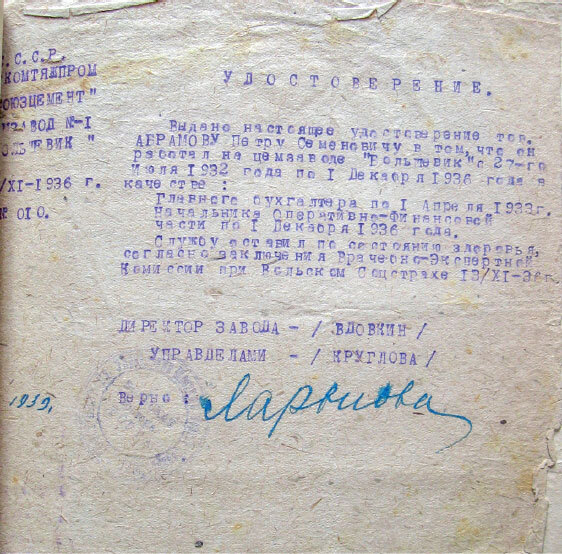 С.С.С.Р.
КОМТЯЖПРОМ
ОЮЗЦЕМЕНТ"
ЗАВОД №-I
ОЛЬШЕВИК "
/XI-1936 г.
№ 010.
УДОСТОВЕРЕНИЕ.
Выдано настоящее удостоверение тов.
АБРАМОВУ Петру Семеновичу в том, что он
работал на цемзаводе "Большевик" с 27-го
Июля 1932 года по I Декабря 1936 года в
качестве :
Главного бухгалтера по I Апреля 1933г.
Начальника Оперативно-Финансовой
части по I Декабря 1936 года.
Службу оставил по состоянию здоровья,
согласно заключения Врачебно-Экспертной
Комиссии при Вольском Соцстрахе 13/XI-36г.
ДИРЕКТОР ЗАВОДА - / ВДОВКИН /
УПРАВДЕЛАМИ - / КРУГЛОВА /
1939.
Верно : Ларионова